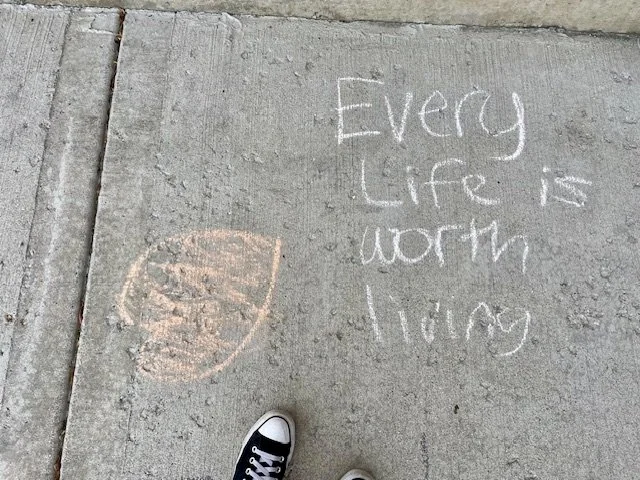 Every
Life is
worth
living